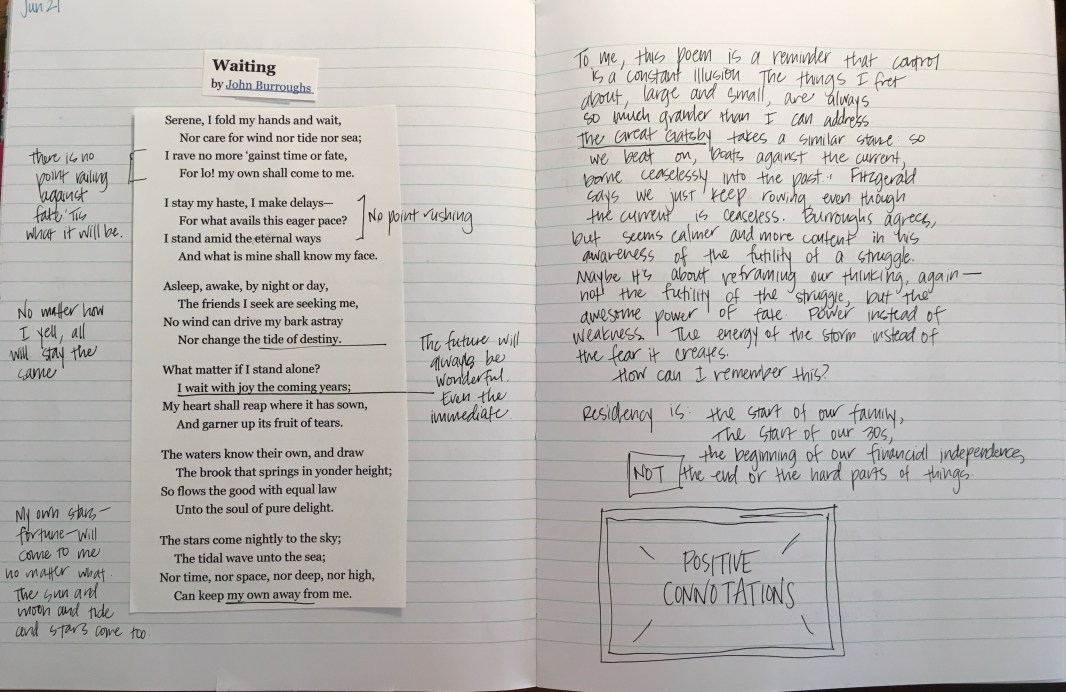 Jun 21
Waiting
by John Burroughs
Serene, I fold my hands and wait,
Nor care for wind nor tide nor sea;
I rave no more 'gainst time or fate,
For lo! my own shall come to me.
I stay my haste, I make delays—
For what avails this eager pace?
I stand amid the eternal ways
And what is mine shall know my face.
Asleep, awake, by night or day,
The friends I seek are seeking me,
No wind can drive my bark astray
Nor change the tide of destiny.
What matter if I stand alone?
I wait with joy the coming years;
My heart shall reap where it has sown,
And garner up its fruit of tears.
The waters know their own, and draw
The brook that springs in yonder height;
So flows the good with equal law
Unto the soul of pure delight.
The stars come nightly to the sky;
The tidal wave unto the sea;
Nor time, nor space, nor deep, nor high,
Can keep my own away from me.
there is no
point railing
against
fate. 'Tis
what it will be.
No point rushing
No matter how
I yell, all
will stay the
same
The future will
always be
wonderful.
Even the
immediate.
My own stars—
fortune—will
come to me
no matter what.
The sun and
moon and tide
and stars come too.
To me, this poem is a reminder that control
is a constant illusion. The things I fret
about, large and small, are always
so much grander than I can address
The Great Gatsby takes a similar stance: so
we beat on, boats against the current,
borne ceaselessly into the past." Fitzgerald
says we just keep rowing, even though
the current is ceaseless. Burroughs agrees,
but seems calmer and more content in his
awareness of the futility of a struggle.
Maybe it's about reframing our thinking, again—
not the futility of the struggle, but the
awesome power of fate. Power instead of
weakness. The energy of the storm instead of
the fear it creates.
How can I remember this?
Residency is: the start of our family,
The start of our 30s,
the beginning of our financial independence,
NOT the end or the hard parts of things.
POSITIVE
CONNOTATIONS